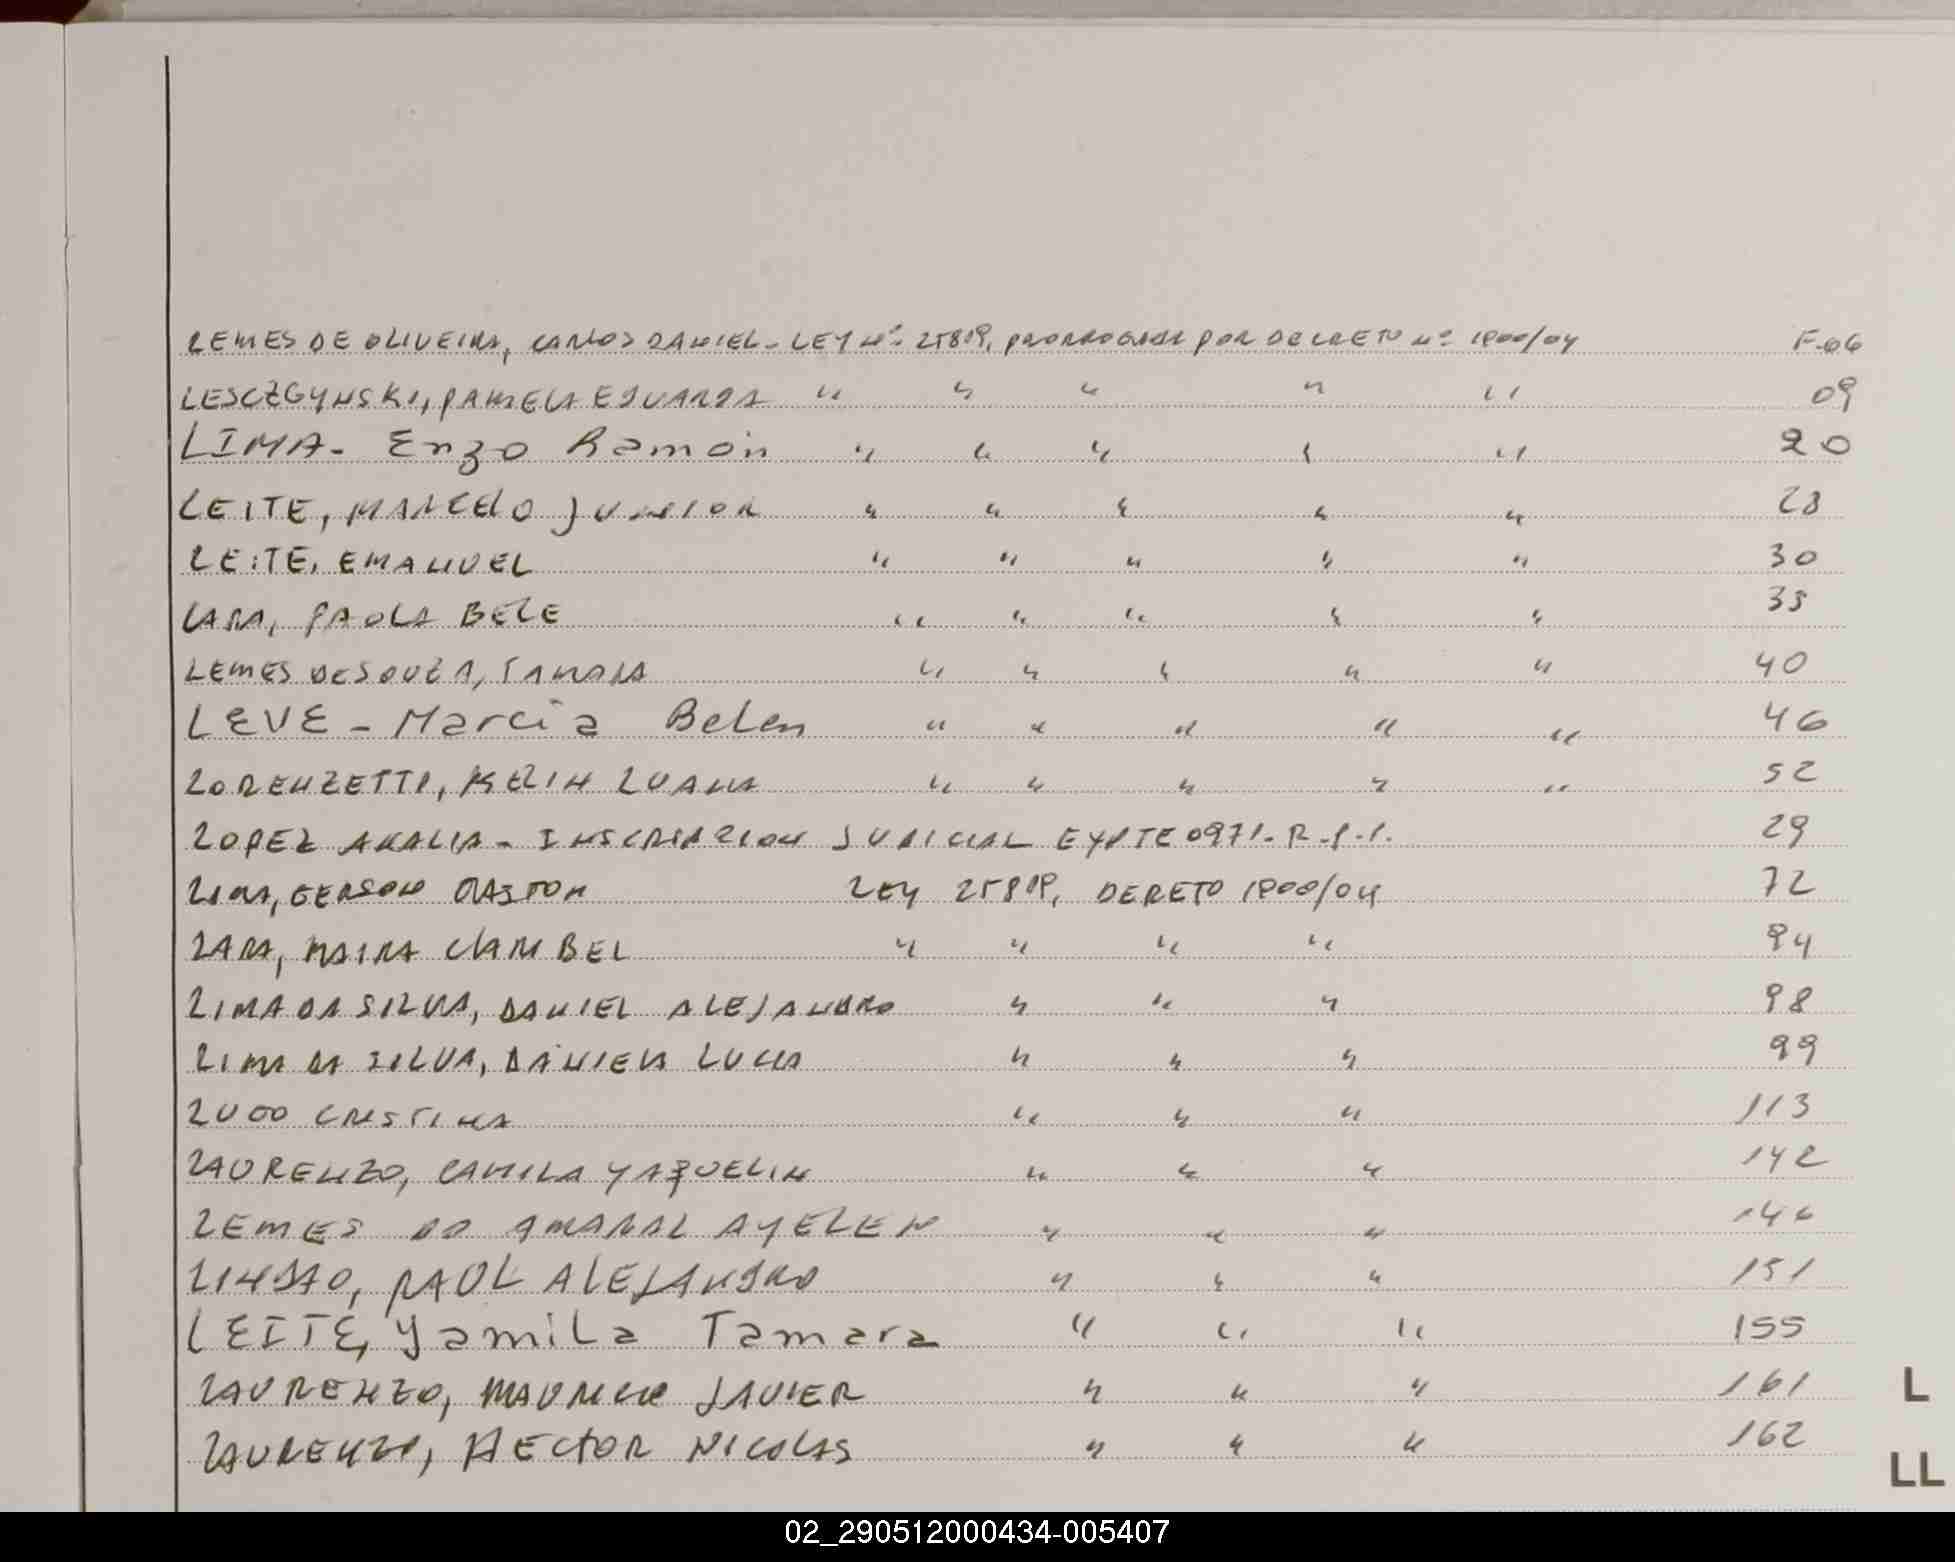 LEMES DE OLIVEIRA, CARLOS DANIEL - LEY Nº 25819, PRORROGADA POR DECRETO Nº 1900/04 F-06
LESCZGYNSKI, PAMELA EDUARDA " " " " " 09
LIMA - Enzo Ramón " " " " " 20
LEITE, MARCELO JUNIOR " " " " " 28
LEITE, EMANUEL " " " " " 30
LARA, PAOLA BELE " " " " " 35
LEMES DE SOUZA, TAMARA " " " " " 40
LEVE - Marcia Belen " " " " " 46
LORENZETTI, KELIN LUANA " " " " " 52
LOPEZ ANALIA - INSCRIPCION JUDICIAL EXPTE 0971 - R.P.P. 29
LIMA, GERSON GASTON LEY 25819, DERETO 1900/04 72
LARA, MAIRA CLARIBEL " " " " 94
LIMA DA SILVA, DANIEL ALEJANDRO " " " 98
LIMA DA SILVA, DANIELA LUCIA " " " 99
LUOO CRISTINA " " " 113
LAURENZO, CAMILA YAQUELIN " " " 142
LEMES DO AMARAL AYELEN " " " 146
LINDAO, RAUL ALEJANDRO " " " 151
LEITE, Yamila Tamara " " " 155
LAURENZO, MAURICIO JAVIER " " " 161
LAURENZO, HECTOR NICOLAS " " " 162
L
LL
02_290512000434-005407